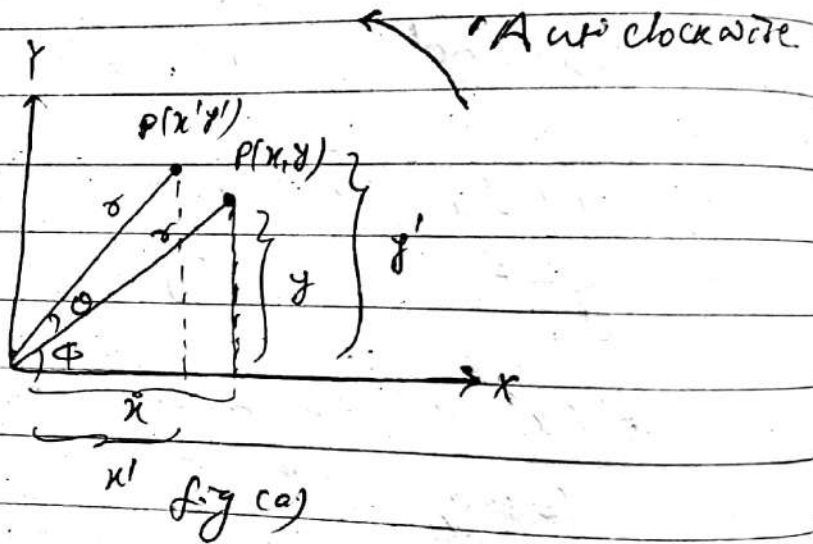 Anti clockwise
Y
P(x'y')
P(x,y)
r
r
θ
y
y'
Φ
X
x
x'
fig (a)